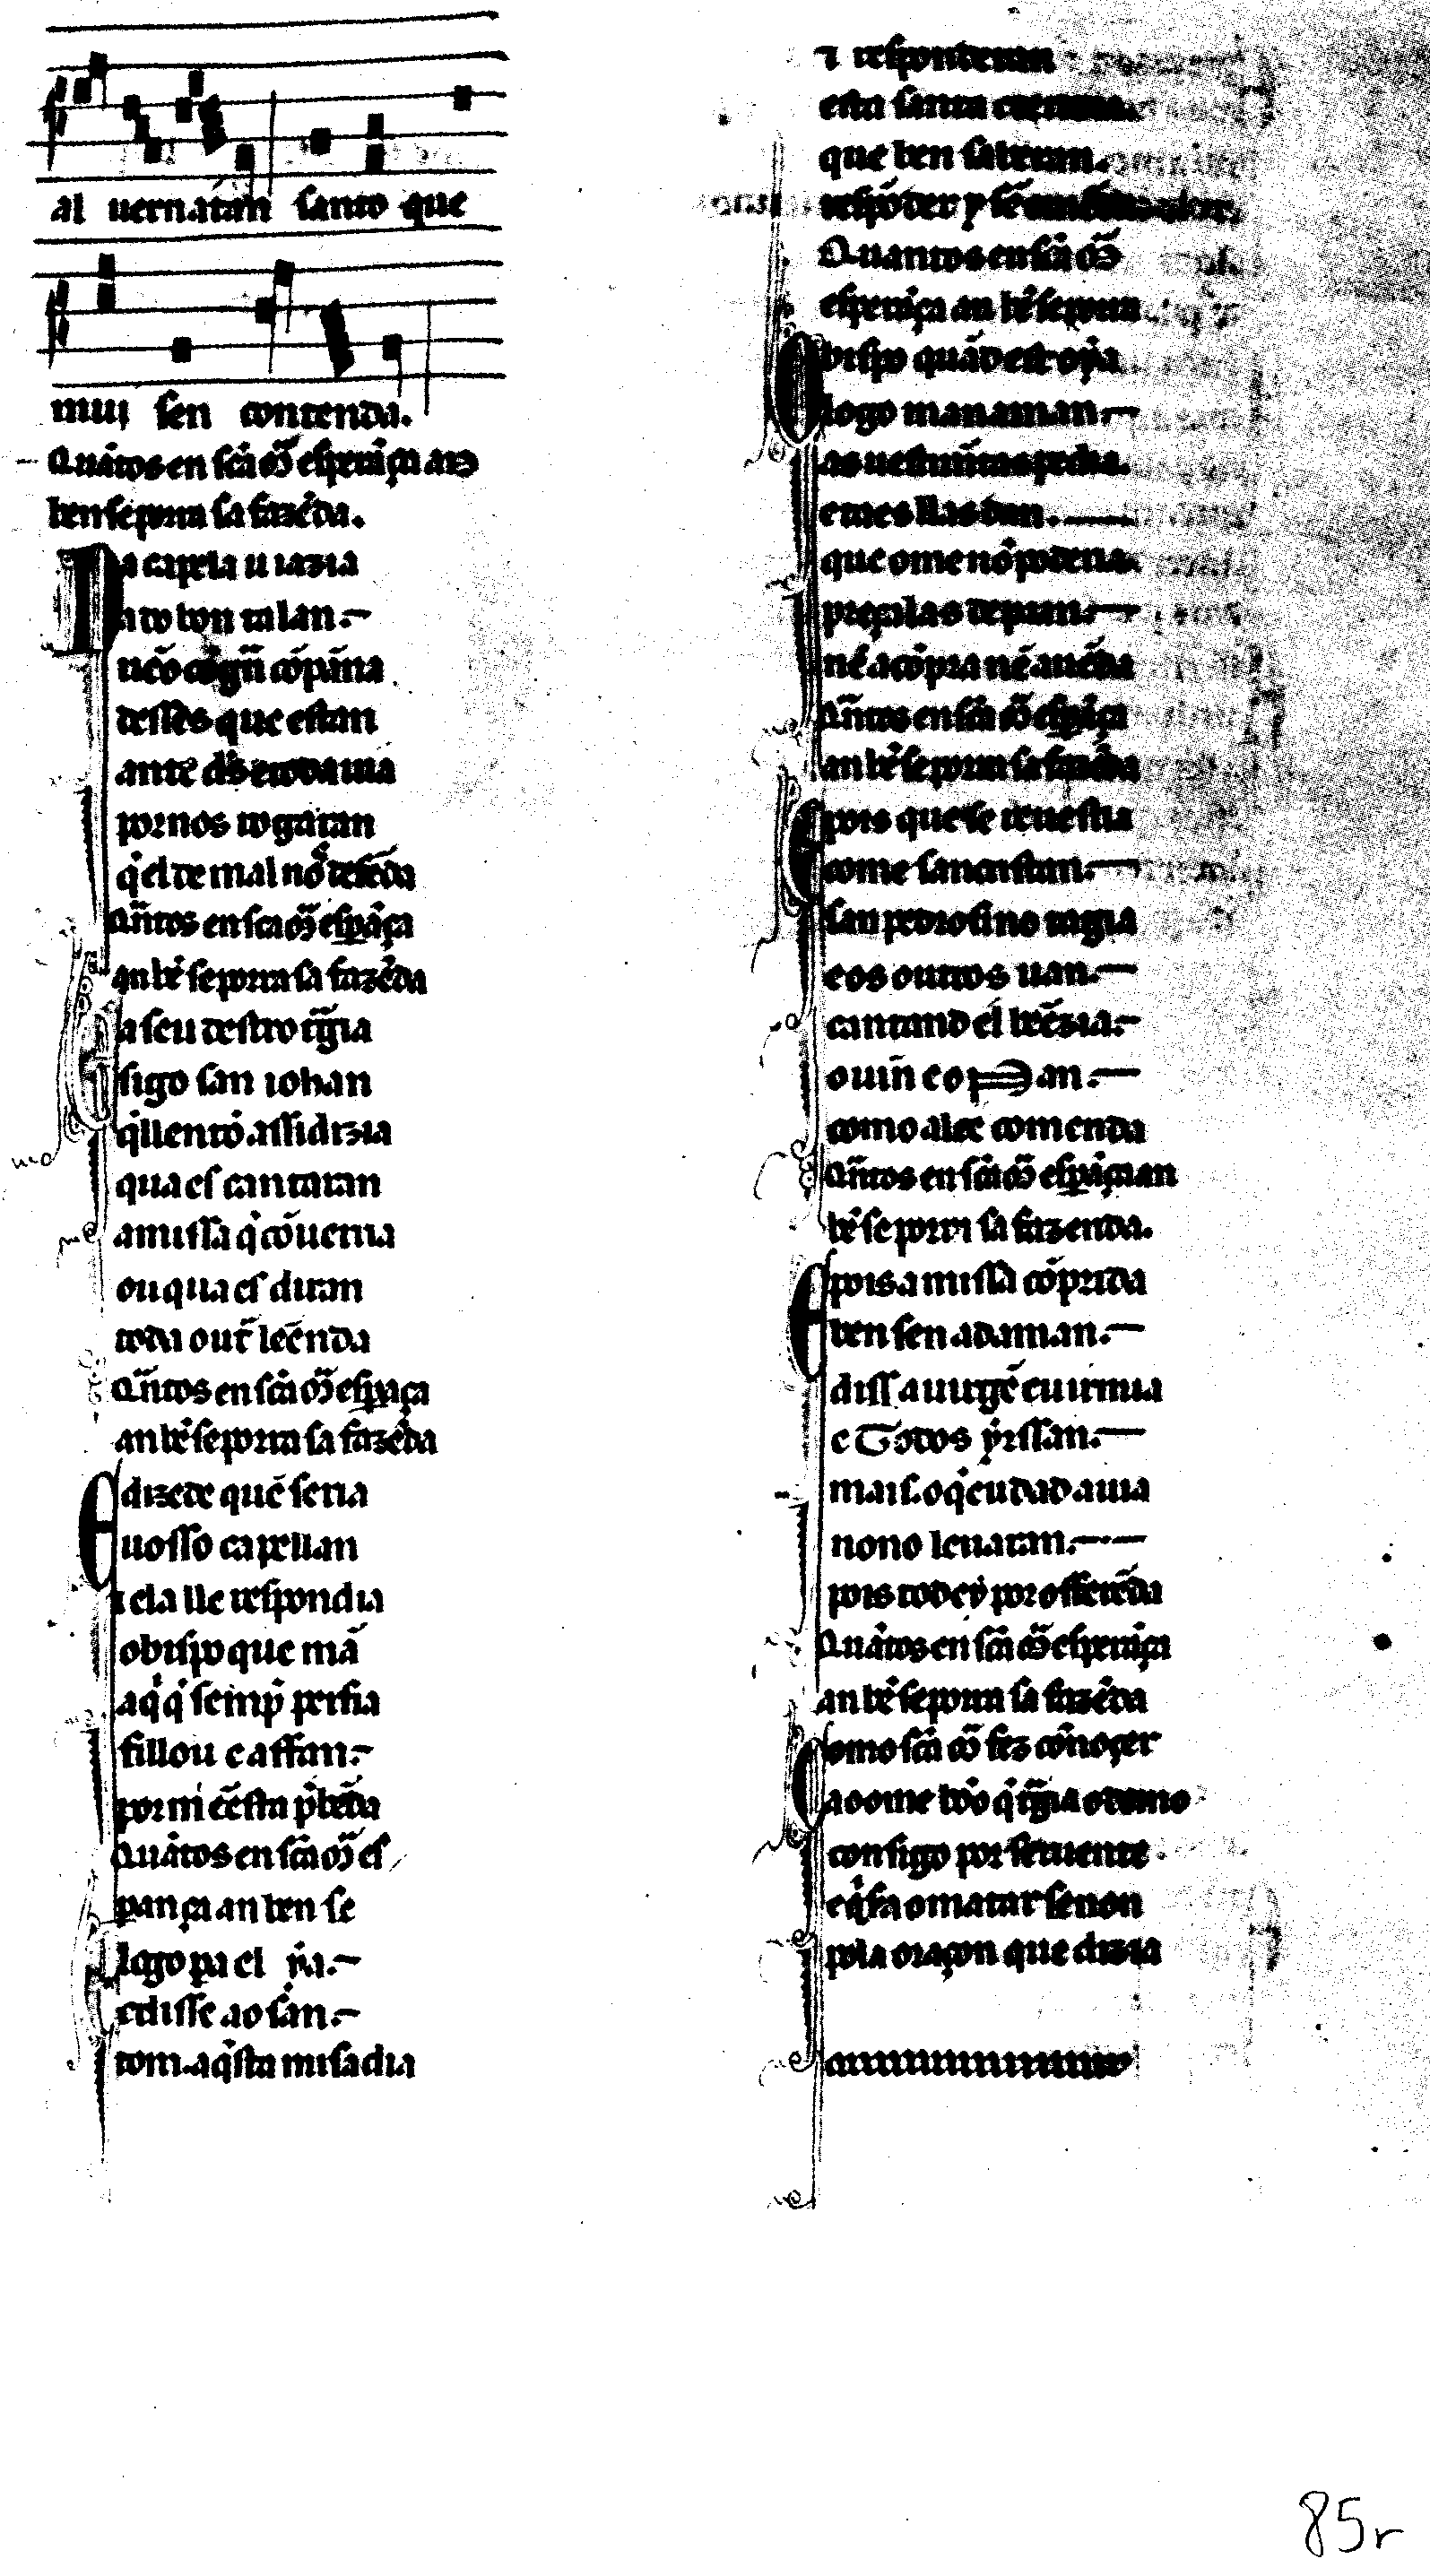 al uernaṫan santo que
muj sen contenda.
Quãtos en scã M̃ esperãça an
ben se porra sa fazẽda.
Na capela u iazia
a to bon talan.
uẽo cõ grã cõpãna
desses que estan
ante d's e toda uia
por nos rogaran
q̇ el de mal nõ defẽda
Q̃ntos en sca M̃ esp̃ãça
an bẽ se porra sa fazẽda
E a seu destro tg̃ia
sigo san iohan
q̇ llentõ assi dizia
quaes cantaran
a missa q̇ cõuenia
ou quaes diran
toda out̃ leẽnda
Q̃ntos en scã M̃ esp̃ãça
an bẽ se porra sa fazẽda
E dizede quẽ seria
uosso capellan
τ ela lle respondia
obispo que mã
aq̇ q̇ semp̃ perfia
fillou e affan.
por mi ẽ esta p̃bẽda
Quãtos en scã M̃ es
pança an ben se
E logo pa el ỹa.
e disse ao san.
tom aq̇sta missa dia
τ responderan
esta santa
que ben saberan.
respõder y sẽ
Quantos en scã M̃
esperãça an bẽ se porra
Obispo quãd est oỹa
logo mana man.
as uestimẽtas pedia.
e taes llas dan.
que ome nõ poderia
preçalas de pran.
nẽ a cõpra nẽ a uẽda
Q̃ntos en scã M̃ esp̃ãça
an bẽ se porra sa fazẽda
E pois que se reuestia
come sancristan.
san pedro sino tangia
e os outros uan.
cantand el bẽezia.
o uiñ e o pan.
como a lee comenda
Q̃ntos en scã M̃ esp̃ãça an
bẽ se porra sa fazenda.
E pois a missa cõprida
ben sen adaman.
diss a uirgẽ eu irmia
e Todos ỹrssan.
mais o q̇ eu dad auia
nono leuaran.
pois todey por offerẽda
Quãtos en scã M̃ esperãça
an bẽ se porra sa fazẽda
Como scã M̃ fez cõnoçer
ao ome bõo q̇ tg̃ia o demo
consigo por seruente
e q̇s'a o matar senon
pola oraçon que dizia
85r